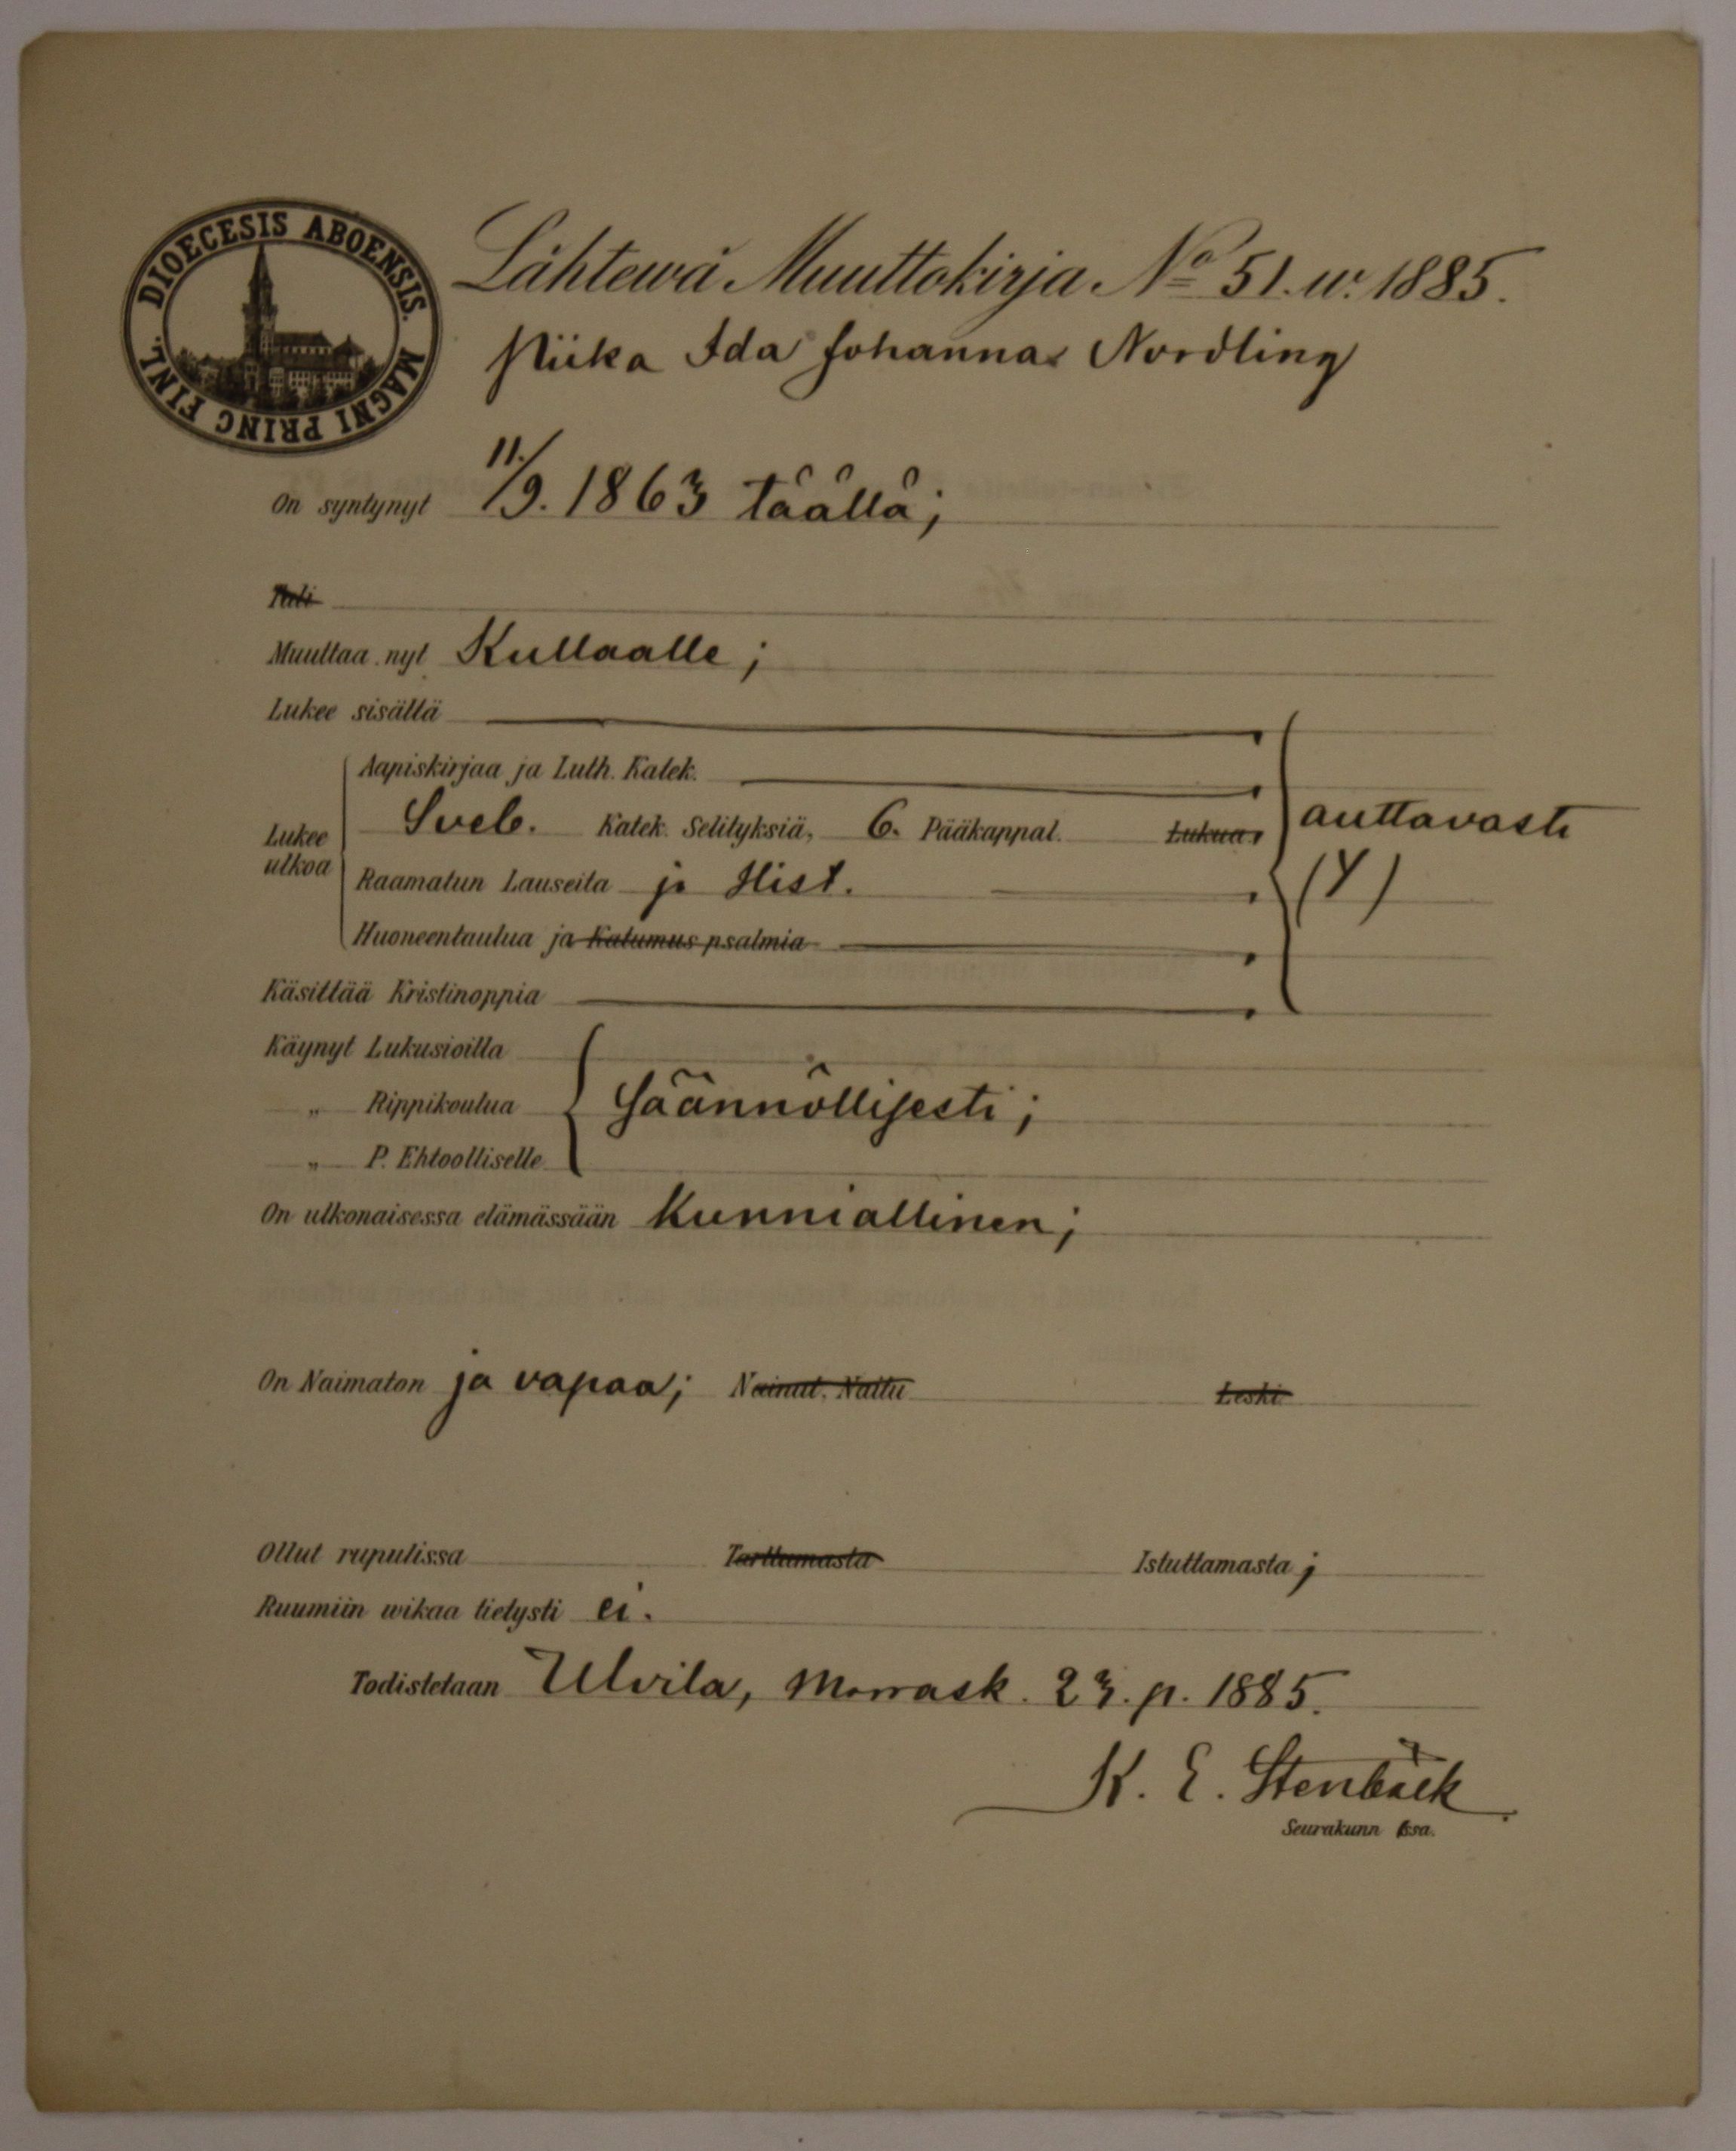 DIOECESIS ABOENSIS. MAGNI PRINC FINL.
Lähtewä Muuttokirja No 51. w. 1885.
Piika Ida Johanna Nordling
On syntynyt 11./9. 1863 täällä;
Tuli
Muuttaa nyt Kullaalle;
Lukee sisältä
Aapiskirjaa ja Luth. Katek.
Lukee ulkoa
Sveb. Katek. Selityksiä, 6. Pääkappal. Lukua. auttavasti
Raamatun Lauseita ja Hist. (Y)
Huoneentaulua ja Katumus psalmia
Käsittää Kristinoppia
Käynyt Lukusioilla
„ Rippikoulua Säännöllisesti;
„ P. Ehtoolliselle
On ulkonaisessa elämässään Kunniallinen;
On Naimaton ja vapaa; Nainut, Naitu Leski
Ollut rupulissa Tarttumasta Istuttamasta;
Ruumiin wikaa tietysti ei.
Todistetaan Ulvila, Marrask. 23. p. 1885.
K. E. Stenbäck
Seurakunn ssa.